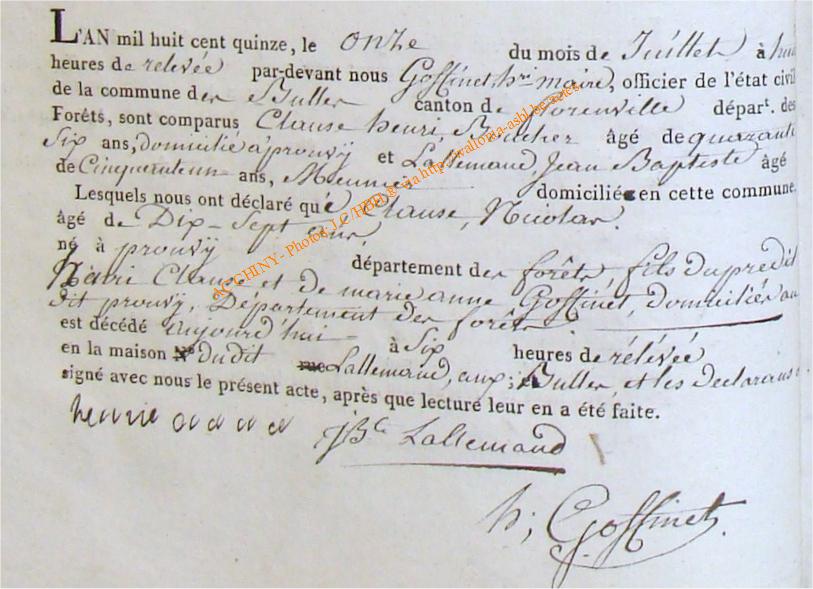 L'AN mil huit cent quinze, le onze du mois de Juillet à huit
heures de relevée par-devant nous Goffinet, hri maire, officier de l'état civil
de la commune des Bulles canton de florenville départ. des
Forêts, sont comparus Clause henri, âgé de quarante
Six ans, domicilié à prouvy et Lallemand, Jean Baptiste âgé
de Cinquanteun ans, Meunier domiciliés en cette commune,
Lesquels nous ont déclaré que Clause, Nicolas.
âgé de Dix-Sept ans,
né à prouvy département des forêts, fils du prédit
Henri Clause et de marie anne Goffinet, domiciliés au
dit prouvy, Département des forêts
est décédé aujourd'hui à Six heures de rélévée
en la maison N° dudit rue Lallemand, aux Bulles, et les declarans
signé avec nous le présent acte, après que lecture leur en a été faite.
JBte Lallemand
h; Goffinet
ACGHINY- Photos: J.C/HBH.R via http://wallonia-asbl.be/actes